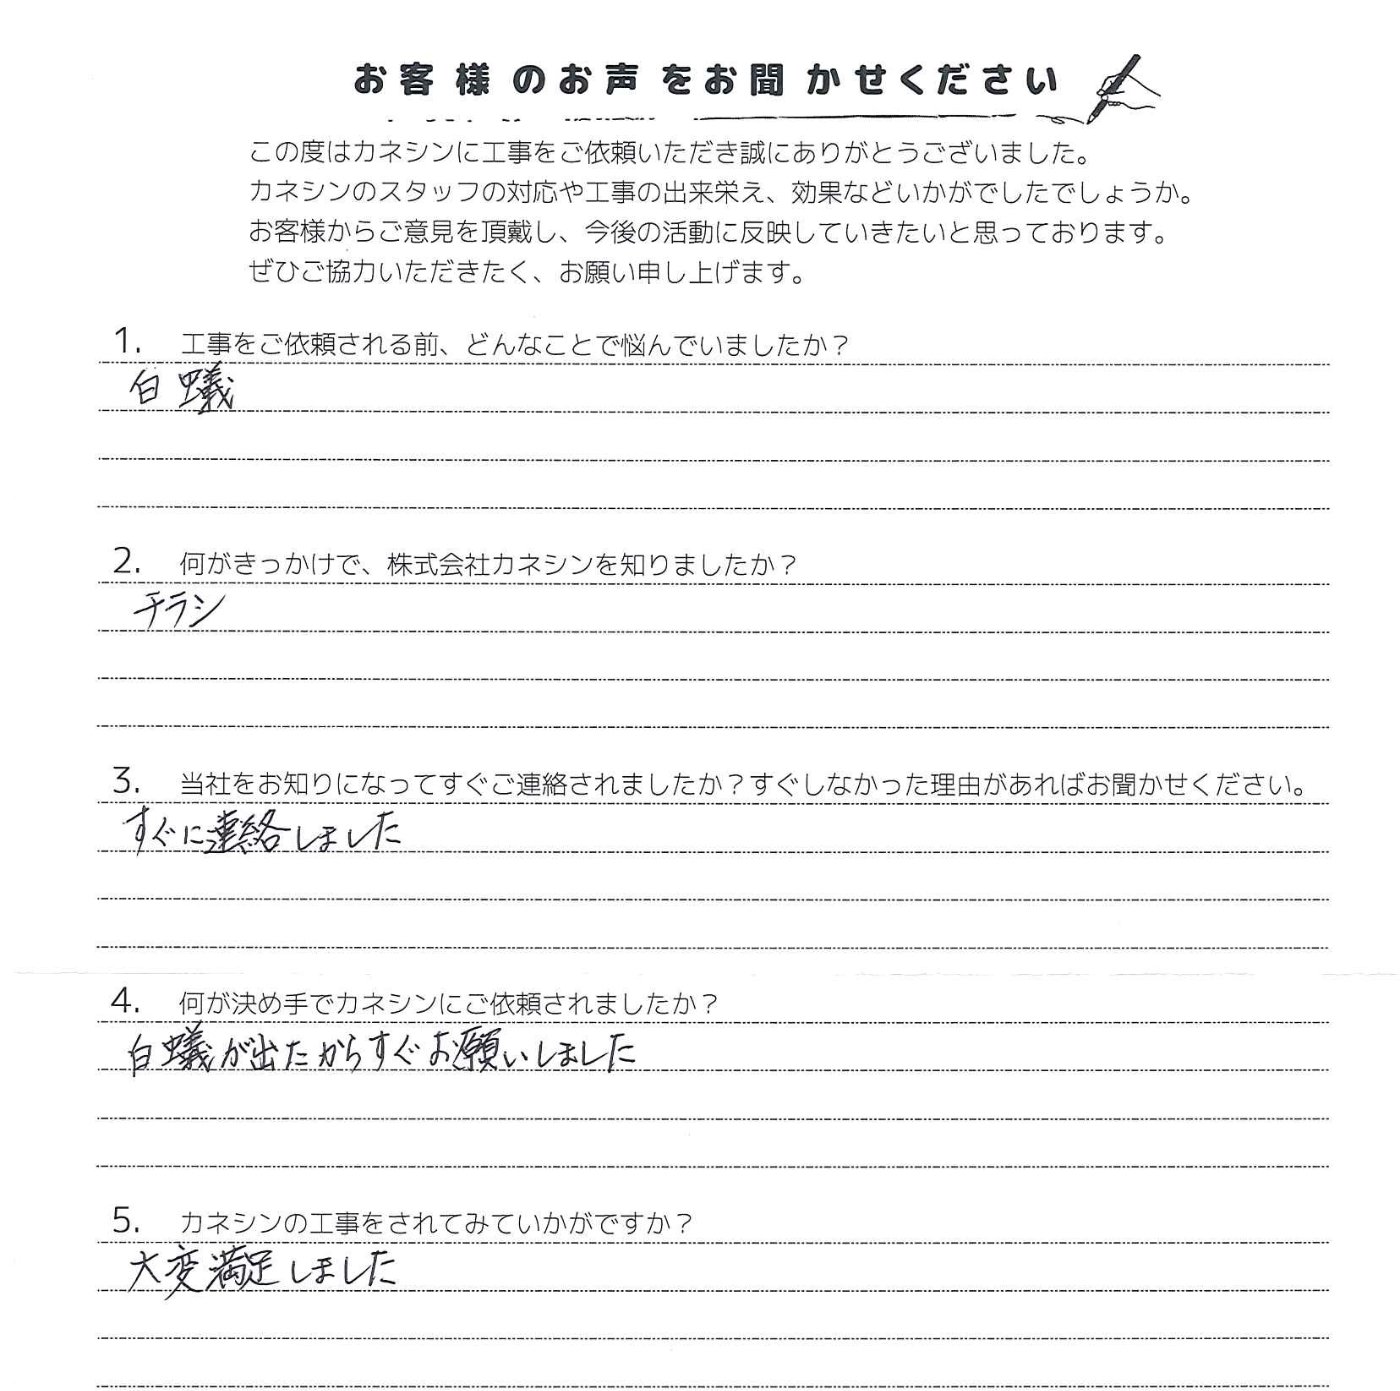 お客様のお声をお聞かせください
この度はカネシンに工事をご依頼いただき誠にありがとうございました。
カネシンのスタッフの対応や工事の出来栄え、効果などいかがでしたでしょうか。
お客様からご意見を頂戴し、今後の活動に反映していきたいと思っております。
ぜひご協力いただきたく、お願い申し上げます。
1. 工事をご依頼される前、どんなことで悩んでいましたか？
白蟻
2. 何がきっかけで、株式会社カネシンを知りましたか？
チラシ
3. 当社をお知りになってすぐご連絡されましたか？すぐしなかった理由があればお聞かせください。
すぐに連絡しました
4. 何が決め手でカネシンにご依頼されましたか？
白蟻が出たからすぐお願いしました
5. カネシンの工事をされてみていかがですか？
大変満足しました